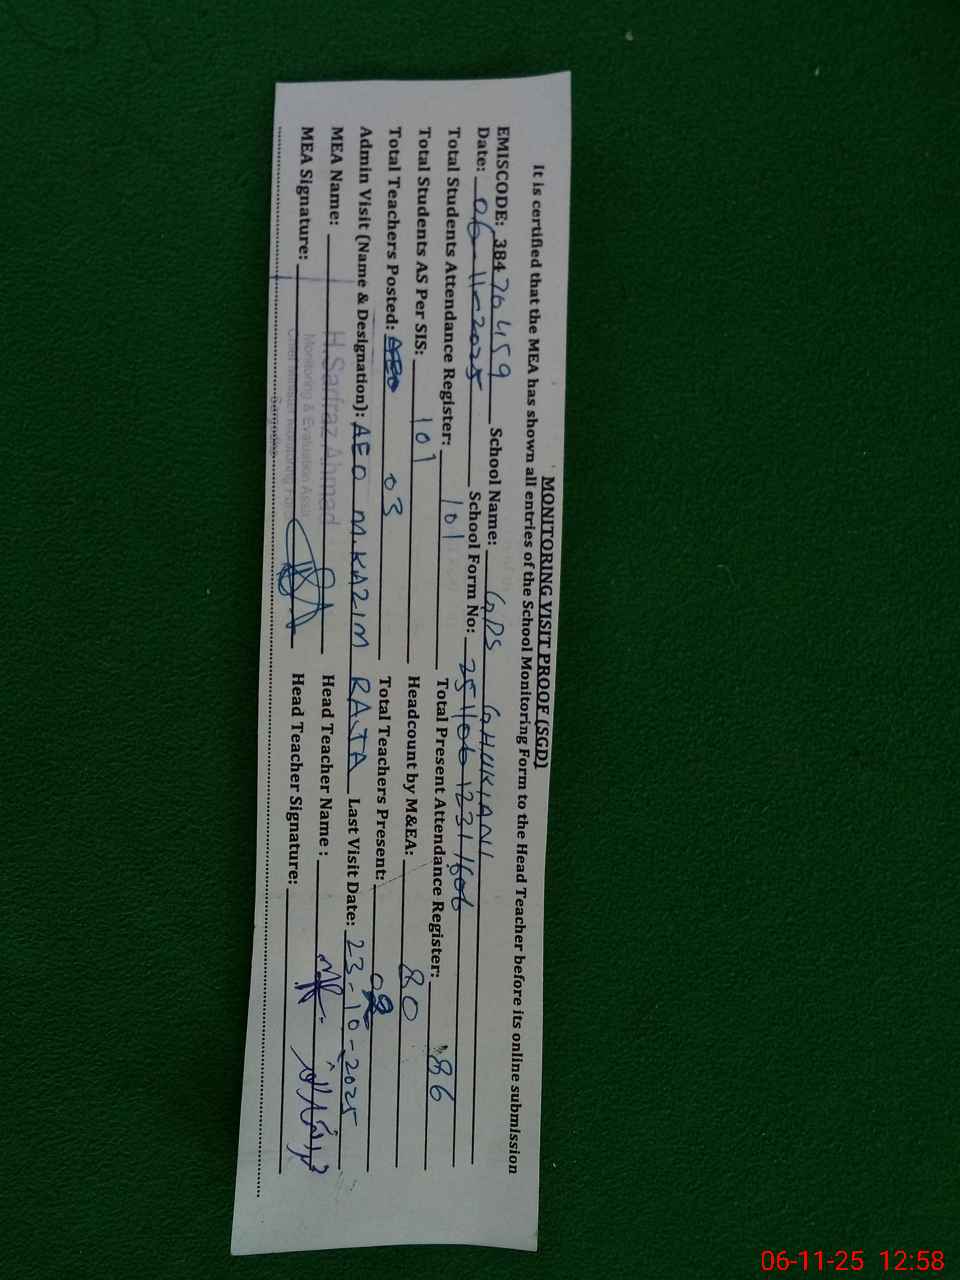 MONITORING VISIT PROOF (SGD)
It is certified that the MEA has shown all entries of the School Monitoring Form to the Head Teacher before its online submission
EMISCODE: 384 70459 School Name: GPS GHUKIANI
Date: 06-11-2025 School Form No: 2511061231606
Total Students Attendance Register: 101 Total Present Attendance Register: 86
Total Students AS Per SIS: 101 Headcount by M&EA: 80
Total Teachers Posted: 03 Total Teachers Present:
Admin Visit (Name & Designation): AEO M.KAZIM RAJA Last Visit Date: 23-10-2025
MEA Name: H.Sarfraz Ahmad Head Teacher Name :
Monitoring & Evaluation
MEA Signature: Head Teacher Signature:
Chief Minister Monitoring
06-11-25 12:58